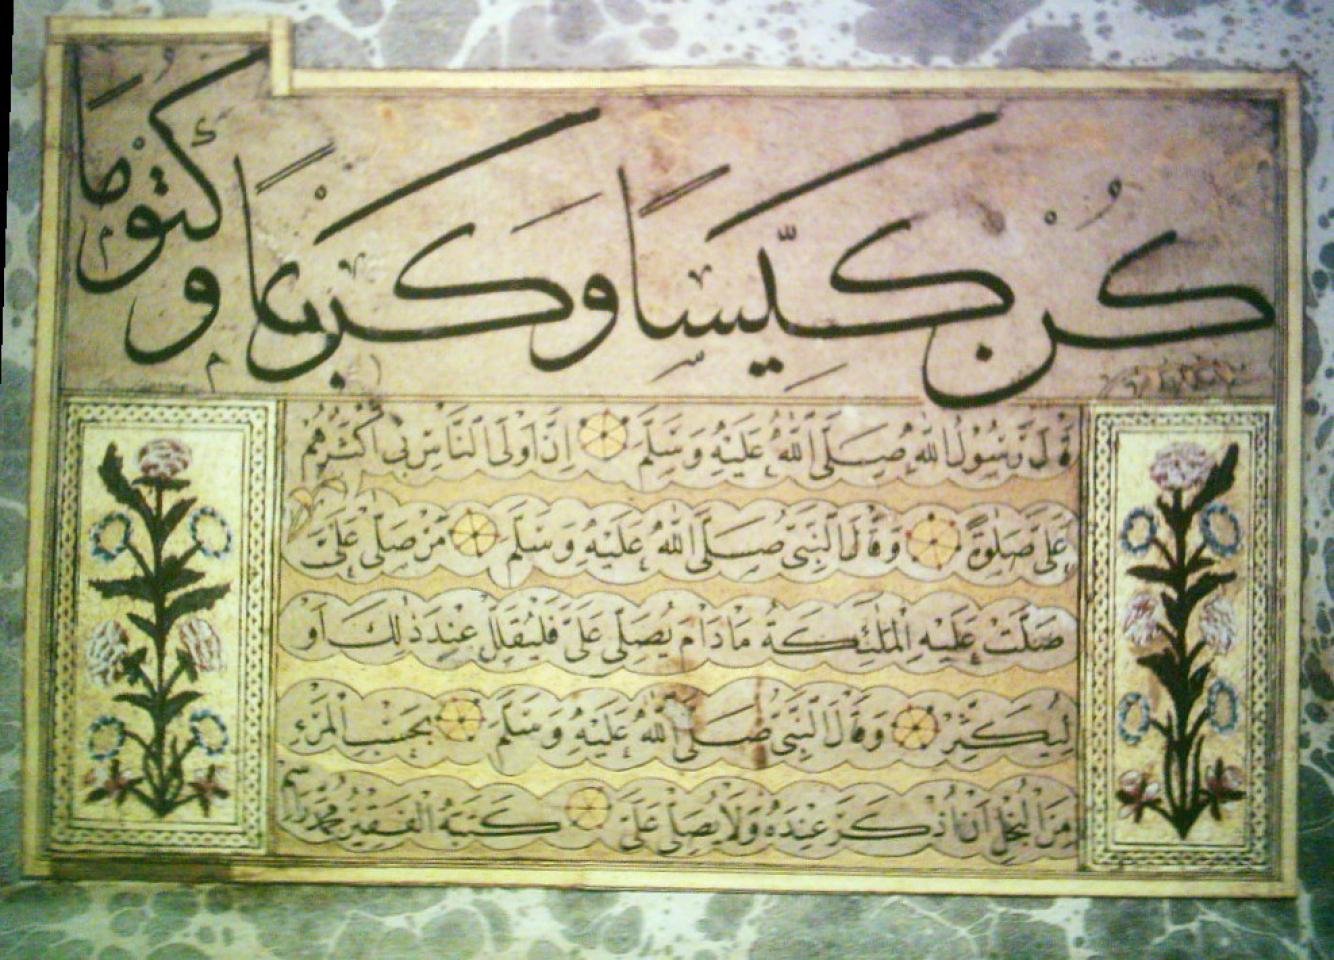 كُنْ كَيِّسًا وَكَرِيمًا وَكَتُومًا
قَالَ رَسُولُ اللّٰهِ صَلَّى اللّٰهُ عَلَيْهِ وَسَلَّمَ اِنَّ اَوْلَى النَّاسِ بِى اَكْثَرُهُمْ
عَلَىَّ صَلٰوةً وَقَالَ النَّبِىُّ صَلَّى اللّٰهُ عَلَيْهِ وَسَلَّمَ مَنْ صَلّٰى عَلَىَّ
صَلَّتْ عَلَيْهِ الْمَلٰئِكَةُ مَادَامَ يُصَلِّى عَلَىَّ فَلْيُقَلِّلْ عِنْدَ ذٰلِكَ اَوْ
لِيُكَثِّرْ وَقَالَ النَّبِىُّ صَلَّى اللّٰهُ عَلَيْهِ وَسَلَّمَ بِحَسْبِ الْمَرْءِ
مِنَ الْبُخْلِ اَنْ اُذْكَرَ عِنْدَهُ وَلَا يُصَلِّى عَلَىَّ كَتَبَهُ الْفَقِيرُ مُحَمَّد رَاسِم